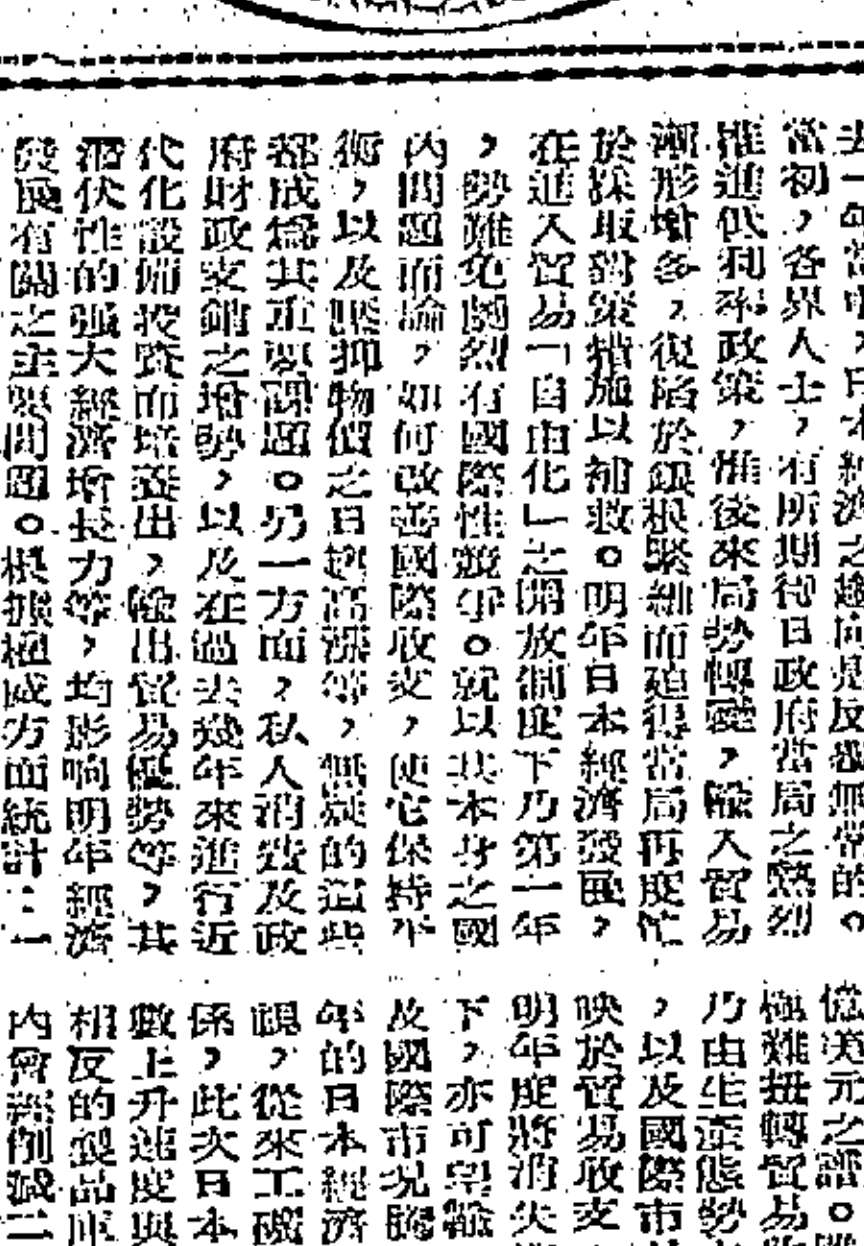 去一年當中，日本經濟之趨向是反覆無常的。
當初，各界人士，有所期待日政府當局之熱烈
推進低利率政策，惟後來局勢轉變，輸入貿易
漸形增多，復陷於銀根緊細而迫得當局再度忙
於採取對策措施以補救。明年日本經濟發展，
在進入貿易「自由化」之開放制度下乃第一年
，勢難免劇烈有國際性競爭。就以其本身之國
內問題而論，如何改善國際收支，使它保持平
衡，以及壓抑物價之日趨高漲等，無疑的這些
都成為其重要課題。另一方面，私人消費及政
府財政支銷之增勢，以及在過去幾年來進行近
代化設備投資而培養出，輸出貿易優勢等，其
潛伏性的强大經濟增長力等，均影响明年經濟
發展有關之主要問題。根據權威方面統計：一
億美元之譜。
極難扭轉貿易
乃由生產態勢
，以及國際市
映於貿易收支
明年度將消失
下，亦可望輸
及國際市況
年的日本經濟
視，從來工礦
係，此次日本
數上升速度與
相反的製品庫
內會經削減二